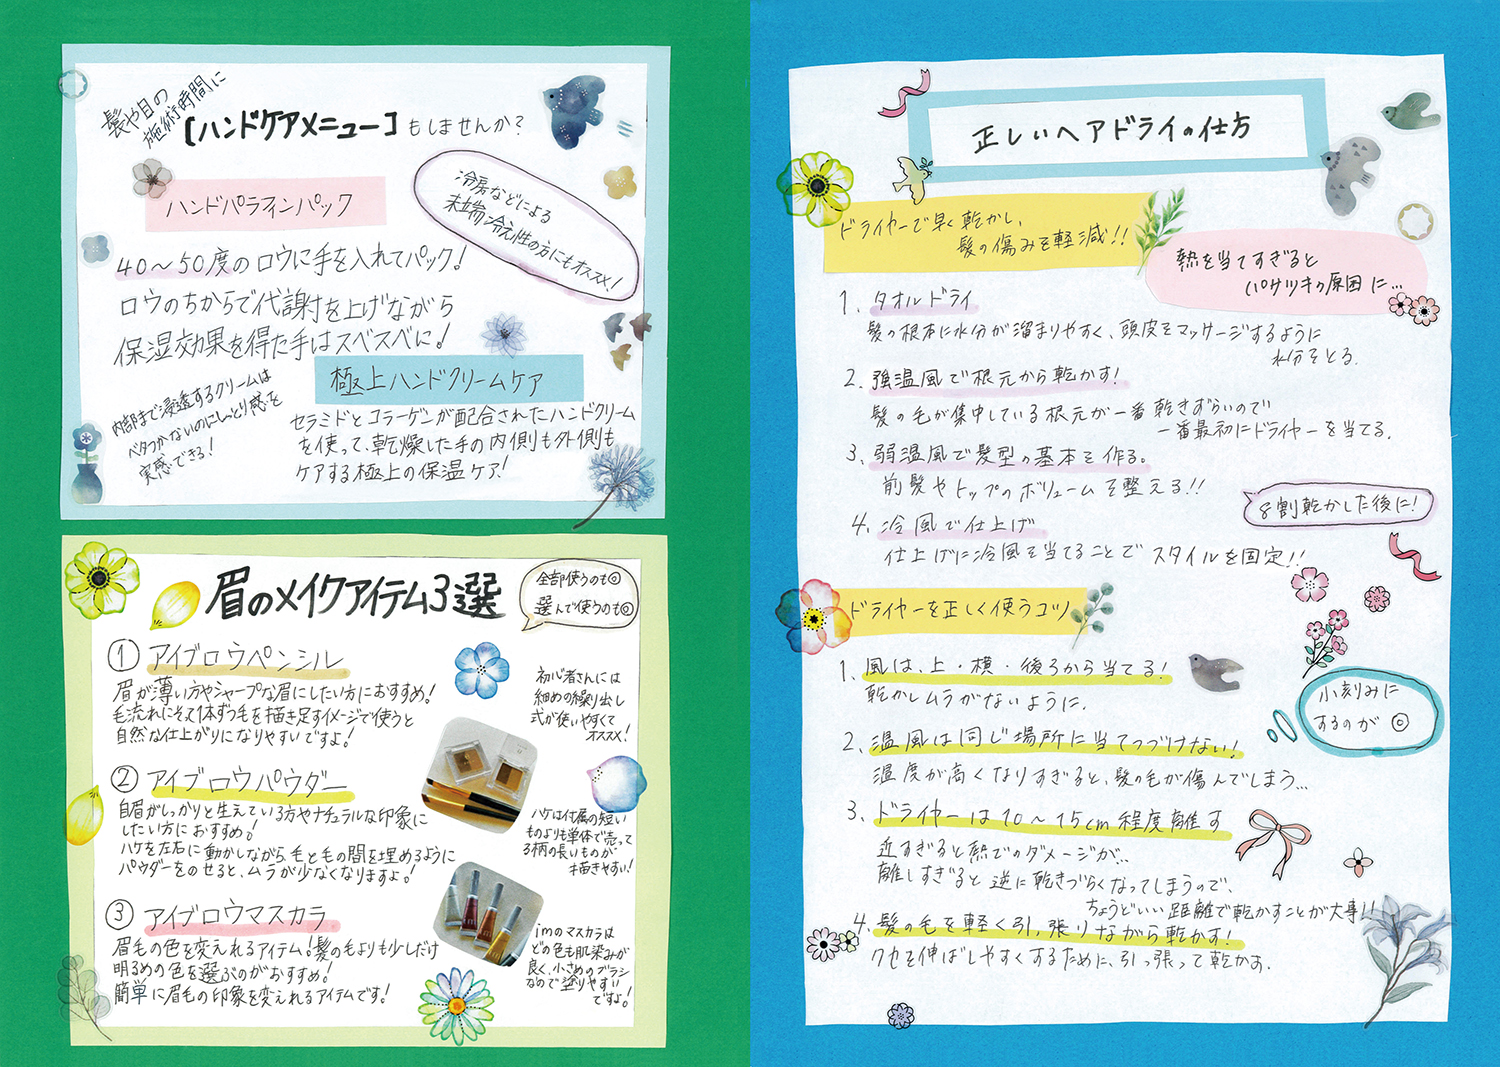 髪や目の
施術時間に
【ハンドケアメニュー】もしませんか?
冷房などによる
末端冷え性の方にもオススメ!
ハンドパラフィンパック
40〜50度のロウに手を入れてパック!
ロウのちからで代謝を上げながら
保湿効果を得た手はスベスベに!
極上ハンドクリームケア
内部まで浸透するクリームは
ベタつかないのにしっとり感を
実感できる!
セラミドとコラーゲンが配合されたハンドクリーム
を使って、乾燥した手の内側も外側も
ケアする極上の保温ケア!
眉のメイクアイテム3選
全部使うのも◎
選んで使うのも◎
① アイブロウペンシル
眉が薄い方やシャープな眉にしたい方におすすめ!
毛流れにそって1本ずつ毛を描き足すイメージで使うと
自然な仕上がりになりやすいですよ!
初心者さんには
細めの繰り出し
式が使いやすくて
オススメ!
② アイブロウパウダー
自眉がしっかりと生えている方やナチュラルな印象に
したい方におすすめ!
ハケを左右に動かしながら毛と毛の間を埋めるように
パウダーをのせると、ムラが少なくなりますよ!
ハケは付属の短い
ものよりも単体で売って
る柄の長いものが
描きやすい!
③ アイブロウマスカラ
眉毛の色を変えれるアイテム!髪の毛よりも少しだけ
明るめの色を選ぶのがおすすめ!
簡単に眉毛の印象を変えれるアイテムです!
imのマスカラは
どの色も肌染みが
良く、小さめのブラシ
なので塗りやすい
ですよ!
正しいヘアドライの仕方
ドライヤーで早く乾かし、
髪の傷みを軽減!!
熱を当てすぎると
パサツキの原因に…
1. タオルドライ
髪の根本に水分が溜まりやすく、頭皮をマッサージするように
水分をとる。
2. 強温風で根元から乾かす!
髪の毛が集中している根元が一番乾きずらいので
一番最初にドライヤーを当てる。
3. 弱温風で髪型の基本を作る。
前髪やトップのボリュームを整える!!
8割乾かした後に!
4. 冷風で仕上げ
仕上げに冷風を当てることでスタイルを固定!!
ドライヤーを正しく使うコツ
1. 風は、上・横・後ろから当てる!
乾かしムラがないように。
小刻みに
するのが◎
2. 温風は同じ場所に当てつづけない!
温度が高くなりすぎると、髪の毛が傷んでしまう…
3. ドライヤーは10〜15cm程度離す
近すぎると熱でのダメージが…
離しすぎると逆に乾きづらくなってしまうので、
ちょうどいい距離で乾かすことが大事!!
4. 髪の毛を軽く引っ張りながら乾かす!
クセを伸ばしやすくするために、引っ張って乾かす。